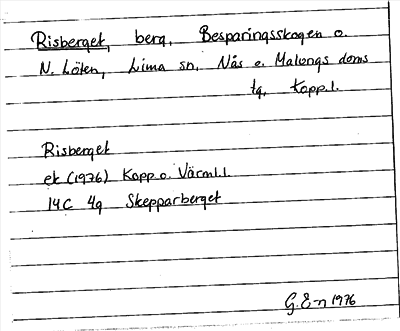 Risberget, berg, Besparingsskogen o.
N. Löten, Lima sn, Nås o. Malungs doms
tg, Kopp.l.
Risberget
ek (1976) Kopp. o. Värml.l.
14C 4g Skepparberget
G.E-n 1976